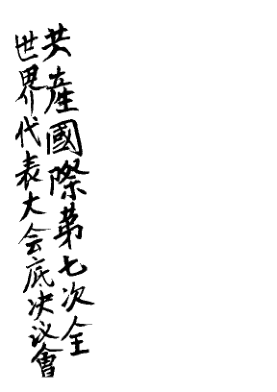 共產國際第七次全
世界代表大会底决议會